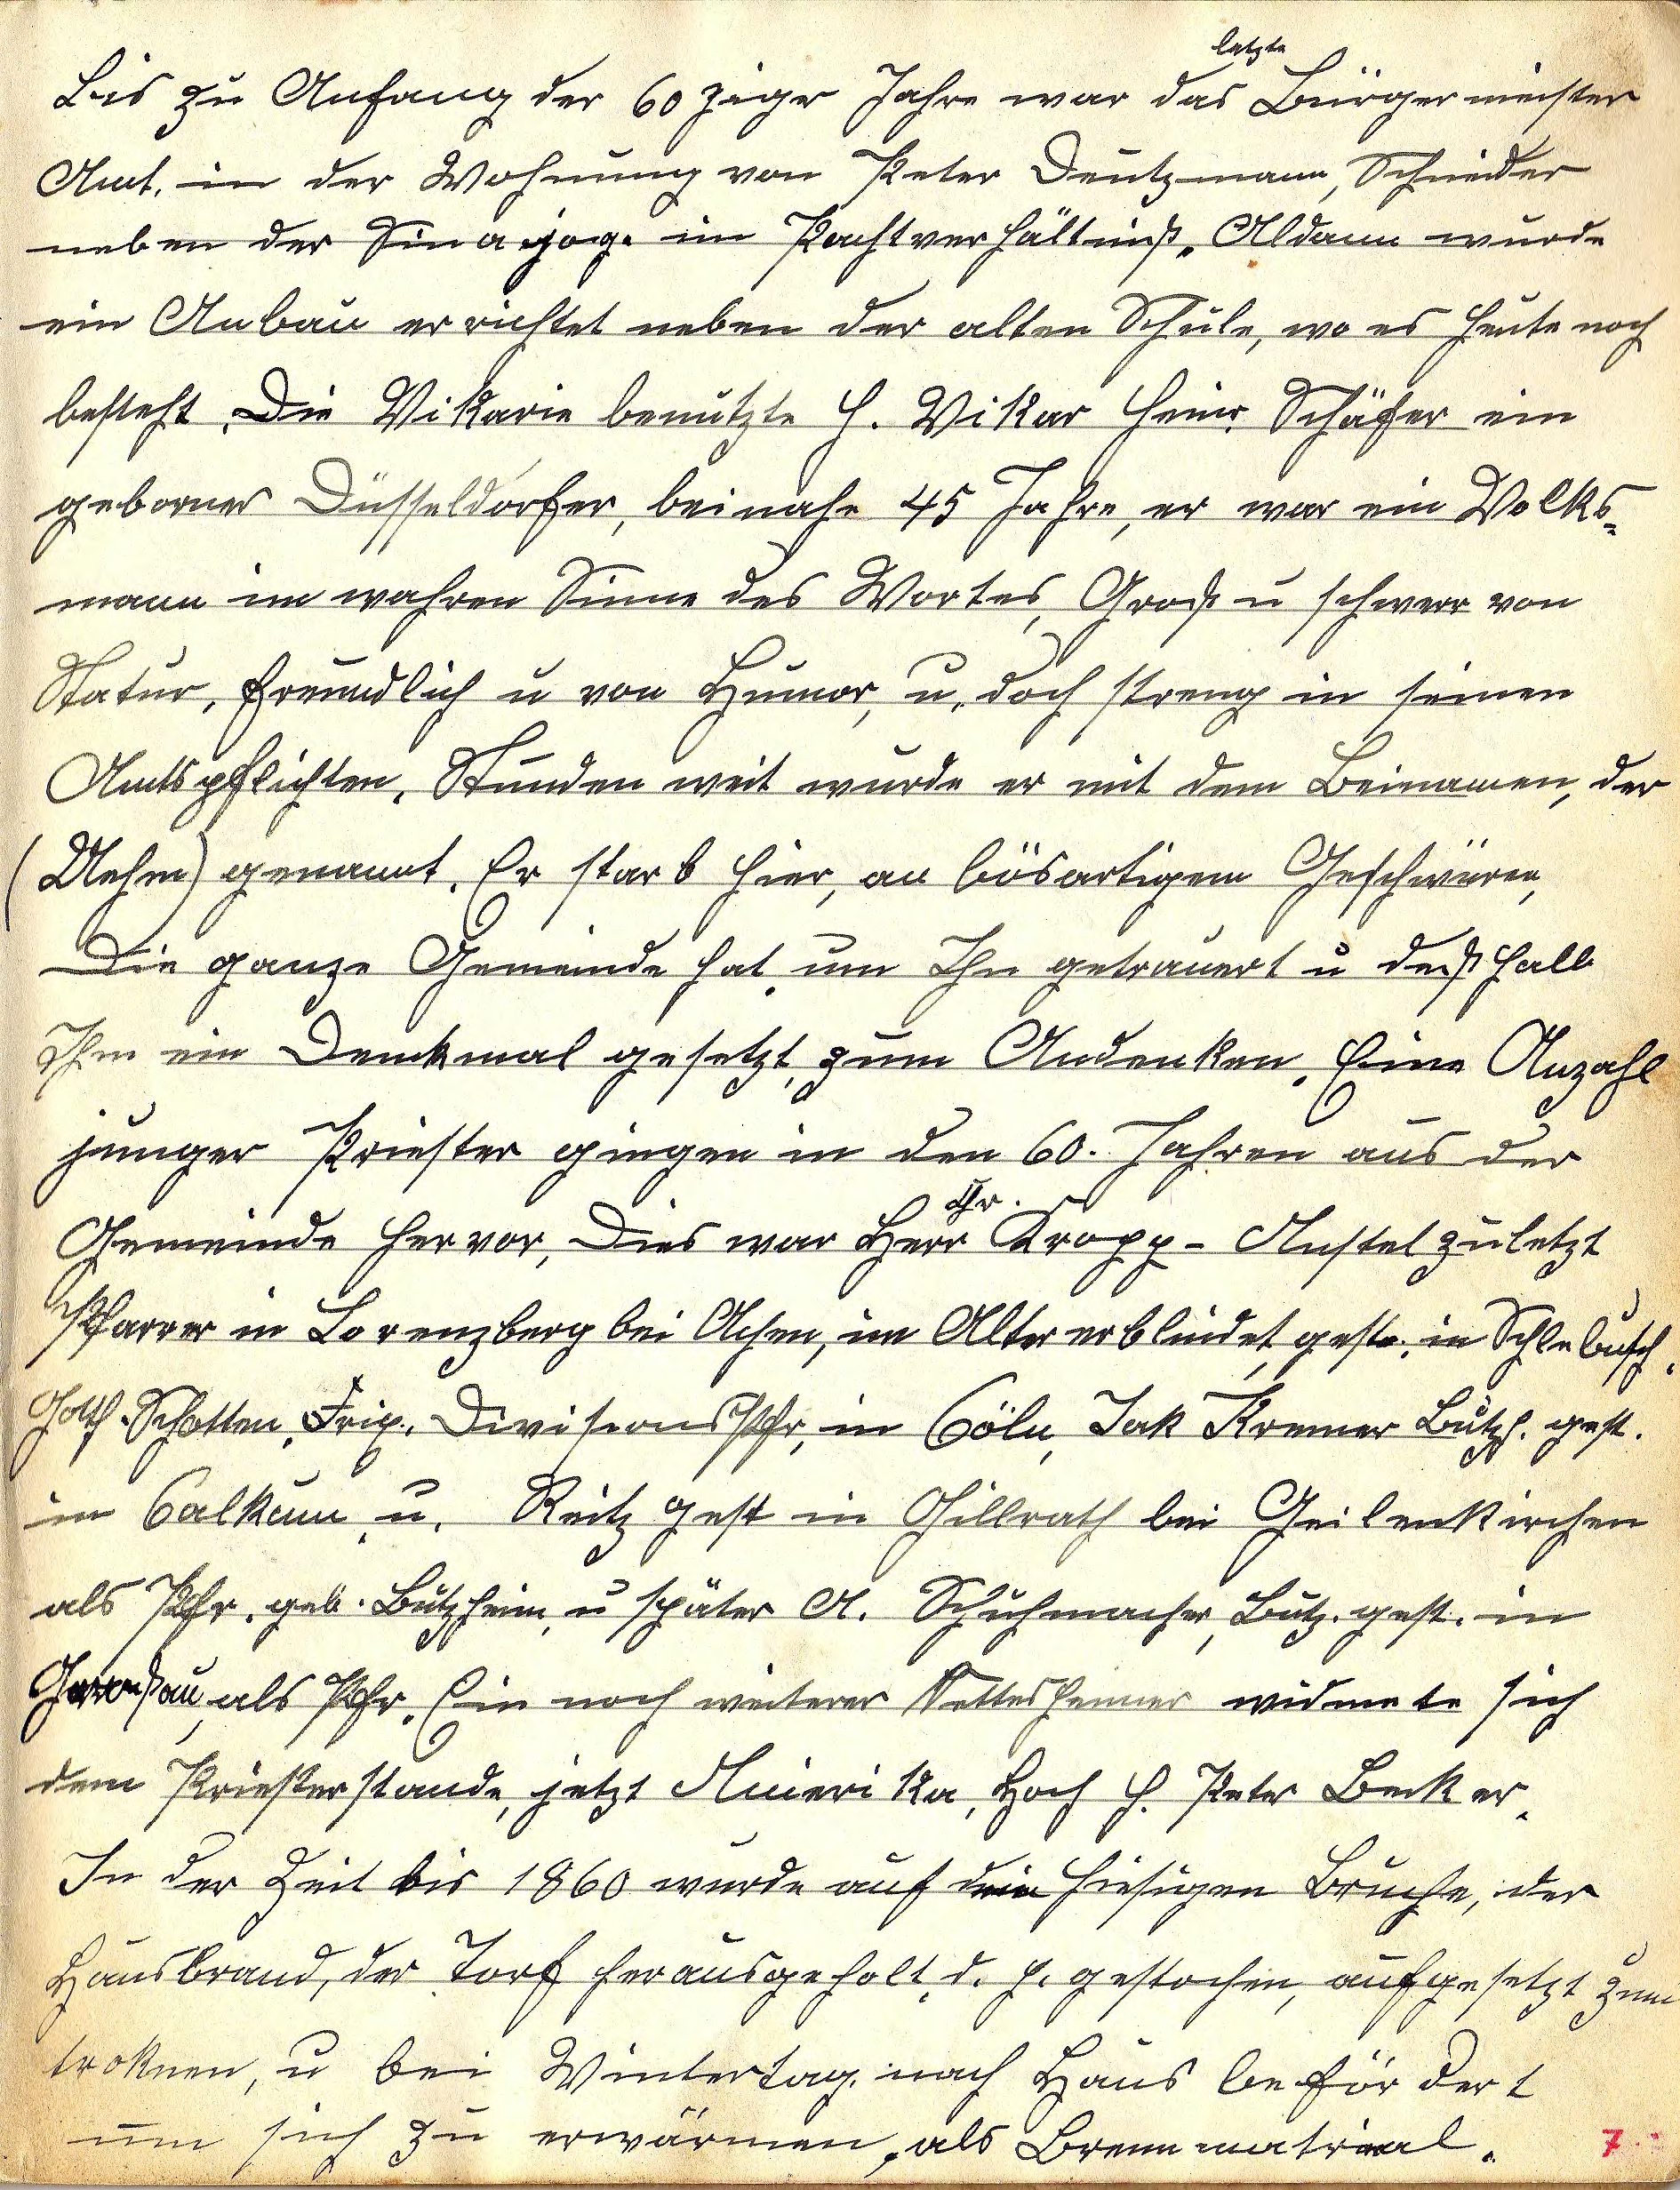 letzte
Bis zu Anfang der 60ziger Jahre war das Bürgermeister
Amt, in der Wohnung von Peter Deutzmann, Schneider
neben der Sinagoge im Pachtverhältniß. Aldann wurde
ein Anbau errichtet neben der alten Schule, wo es heute noch
besteht. Die Vikarie benutzte H. Vikar Heinr. Schäfer ein
geborner Düsseldorfer, beinahe 45 Jahre, er war ein Volks-
mann im wahren Sinne des Wortes, Groß u schwer von
Statur, freundlich u von Humor, u. doch streng in seinen
Amtspflichten. Stunden weit wurde er mit dem Beinamen, der
(Uehm) genannt. Er starb hier, an bösartigem Geschwüren,
Die ganze Gemeinde hat um Ihn getrauert u deßhalb
Ihm ein Denkmal gesetzt, zum Andenken. Eine Anzahl
junger Priester gingen in den 60. Jahren aus der
Dr.
Gemeinde hervor, Dies war Herr Kropp - Anstel zuletzt
Pfarrer in Lorenzberg bei Achen, im Alter erblindet, gest. in Schlebusch.
Gotth. Schotten, Frix. Divisions Pfr, in Cöln, Jak Kremer Butzh. gest.
in Calkum, u. Reitz gest in Gillrath bei Geilenkirchen
als Pfr. geb. Butzheim, u später A. Schuhmacher, Butz. gest. in
als Pfr. Ein noch weiterer Nettesheimer widmete sich
dem Priesterstande, jetzt Amerika, Hoch H. Peter Becker.
In der Zeit bis 1860 wurde auf dem hiesigen Bruche, der
Hausbrand, der Torf herausgeholt, d. h. gestochen, aufgesetzt zum
troknen, u bei Wintertag nach Haus befördert
um sich zu erwärmen, als Brennmatrial.
7